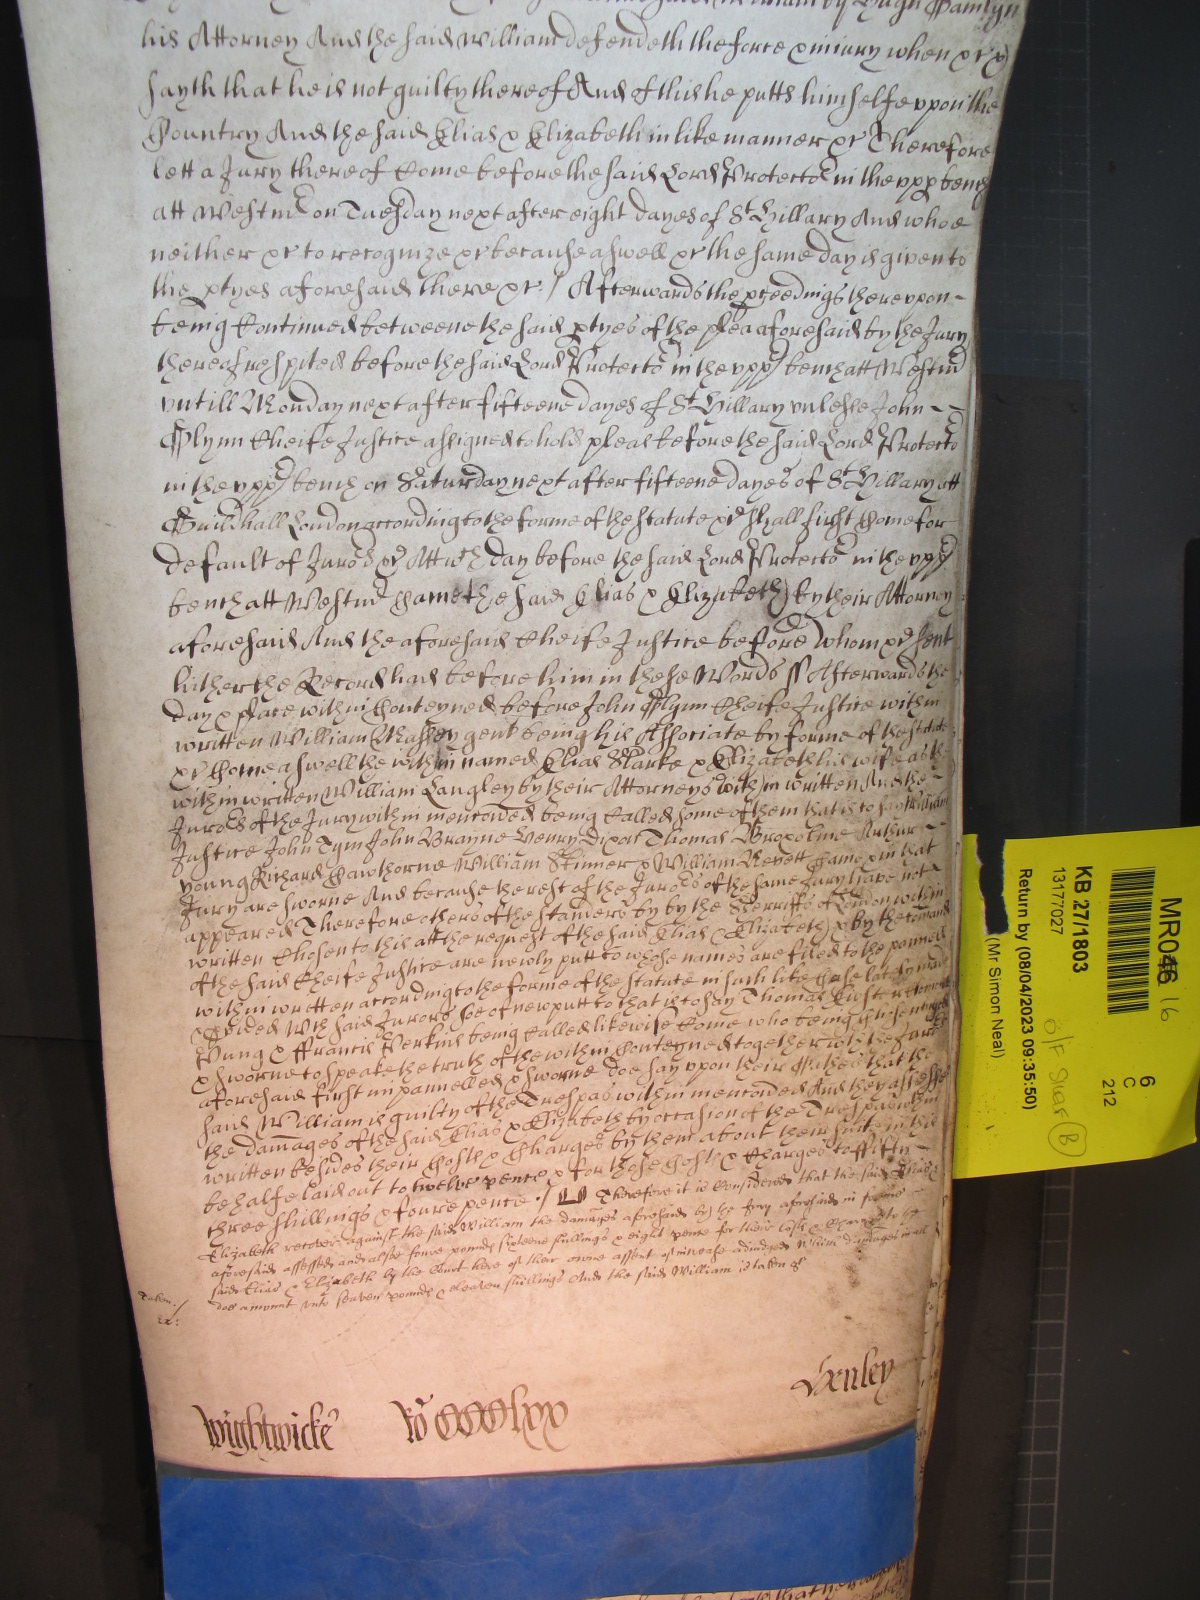 his Attorney And the said William defendeth the force & iniury when &c &
sayth that he is not guilty thereof And of this he putts himselfe vpon the
Country And the said Elias & Elizabeth in like manner &c Therefore
lett a Jury thereof Come before the said Lord Protector in the vpp bench
att Westmr on Tuesday next after eight dayes of St Hillary And whoe
neither &c to recognize &c because aswell &c the same day is given to
the ptyes aforesaid there &c / Afterwards the pceedings therevpon
being Continued betweene the said ptyes of the plea aforesaid by the Jury
thereof respited before the said Lord Protector in the vpp bench att Westmr
vntill Monday next after fifteene dayes of St Hillary vnlesse John
Glynn Cheife Justice assigned to hold pleas before the said Lord Protector
in the vpp bench on Saturday next after fifteene dayes of St Hillary att
Guildhall London according to the forme of the statute &c shall first Come for
default of Jurors &c Att wch day before the said Lord Protector in the vpp
bench att Westmr Came the said Elias & Elizabeth by their Attorney
aforesaid And the aforesaid Cheife Justice before whom &c sent
hither the Record had before him in these Words ss Afterwards the
day & place within Conteyned before John Glynn Cheife Justice within
written William Massey gent being his Associate by forme of the statute
&c Come aswell the within named Elias Starke & Elizabeth his wife as the
within written William Langley by their Attorneys within written And the
Jurors of the Jury within mencioned being Called some of them that is to say William
Justice John Tym John Browne Henry Dixon Thomas Arthur
young Richard Hawthorne William Skinner & William Revett Came & in that
Jury are sworne And because the rest of the Jurors of the same Jury have not
appeared Therefore others of the standers by by the Sherriffs of London within
written Chosen to this att the request of the said Elias & Elizabeth & by the Comand
of the said Cheife Justice are newly putt to whose names are filed to the pannell
within written according to the forme of the statute in such like Case late made &
pvided Wch said Jurors soe of new putt to that is to say Thomas
& Francis Perkins being Called likewise Come who being
& sworne to speake the truth of the within Conteyned together with the Jurors
aforesaid first impannelled & sworne doe say vpon their Oathes that the
said William is guilty of the Trespas within mencioned And they assesse
the damages of the said Elias & Elizabeth by occasion of the Trespas within
written besides their Costs & Charges by them about their suite in this
behalfe laid out to twelve pence & for those Costs & Charges to fifty
three shillings & foure pence / Therefore it is Considered that the said Elias &
Elizabeth recover against the said William the damages aforesaid by the Jury aforesaid in forme
aforesaid assessed and alsoe foure pounds sixteene shillings & eight pence for their Costs & Charges to the
said Elias & Elizabeth by the Court here of their owne assent of increase adiudged Which damages in all
doe amount vnto seaven pounds & eleaven shillings And the said William is taken &c
Taken /
Ex:
Wightwicke Ro CCCClxx Henley
MR046 16
KB 27/1803
13177027
6
C
212
Return by (08/04/2023 09:35:50)
(Mr Simon Neal)